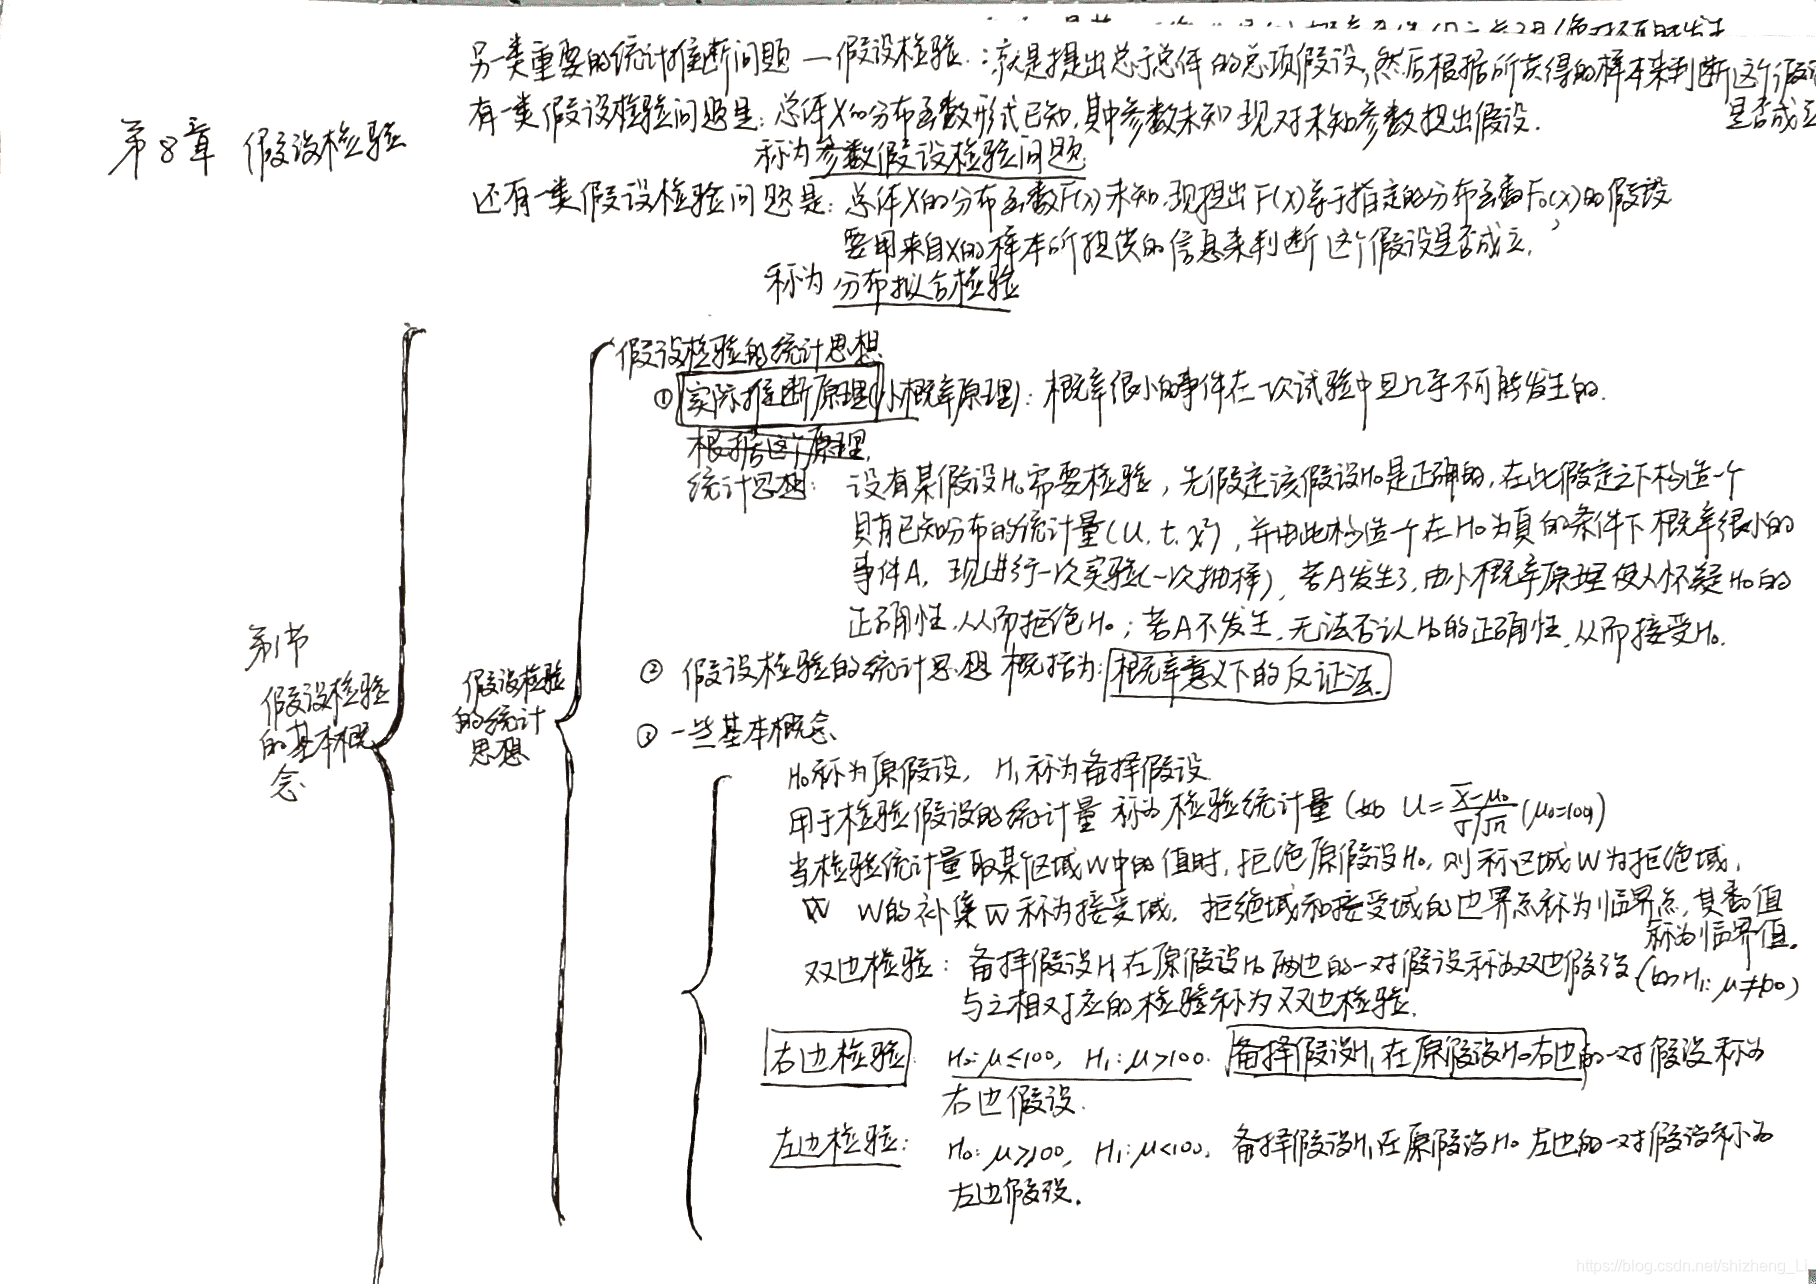 另一类重要的统计推断问题 — 假设检验:就是提出总于总体的总项假设,然后根据所获得的样本来判断这个假设
是否成立
第8章 假设检验
有一类假设检验问题是:总体X的分布函数形式已知,其中参数未知 现对未知参数提出假设.
称为参数假设检验问题
还有一类假设检验问题是:总体X的分布函数F(x)未知,现提出F(x)等于指定的分布函数F₀(x)的假设,
要用来自X的样本所提供的信息来判断这个假设是否成立.
称为 分布拟合检验
第1节
假设检验
的基本概
念
假设检验
的统计
思想
假设检验的统计思想
① 实际推断原理(小概率原理):概率很小的事件在一次试验中是几乎不可能发生的.
根据这个原理.
统计思想: 设有某假设H₀需要检验,先假定该假设H₀是正确的,在此假定之下构造一个
具有已知分布的统计量(U, t, χ²),并由此构造一个在H₀为真的条件下概率很小的
事件A, 现进行一次实验(一次抽样),若A发生了,由小概率原理使人怀疑H₀的
正确性,从而拒绝H₀;若A不发生,无法否认H₀的正确性,从而接受H₀.
② 假设检验的统计思想 概括为:概率意义下的反证法.
③ 一些基本概念
H₀称为原假设, H₁称为备择假设
用于检验假设的统计量 称为 检验统计量 (如 U = (x̄-μ₀)/(σ/√n) (μ₀=100)
当检验统计量取某个区域W中的值时,拒绝原假设H₀,则称区域W为拒绝域,
W的补集W̄称为接受域. 拒绝域和接受域的边界点称为临界点,其数值
称为临界值.
双边检验: 备择假设H₁在原假设H₀两边的一对假设称为双边假设(如H₁: μ≠100)
与之相对应的检验称为双边检验.
右边检验: H₀: μ≤100, H₁: μ>100. 备择假设H₁在原假设H₀右边的一对假设称为
右边假设.
左边检验: H₀: μ≥100, H₁: μ<100, 备择假设H₁在原假设H₀左边的一对假设称为
左边假设.
https://blog.csdn.net/shizheng_Li